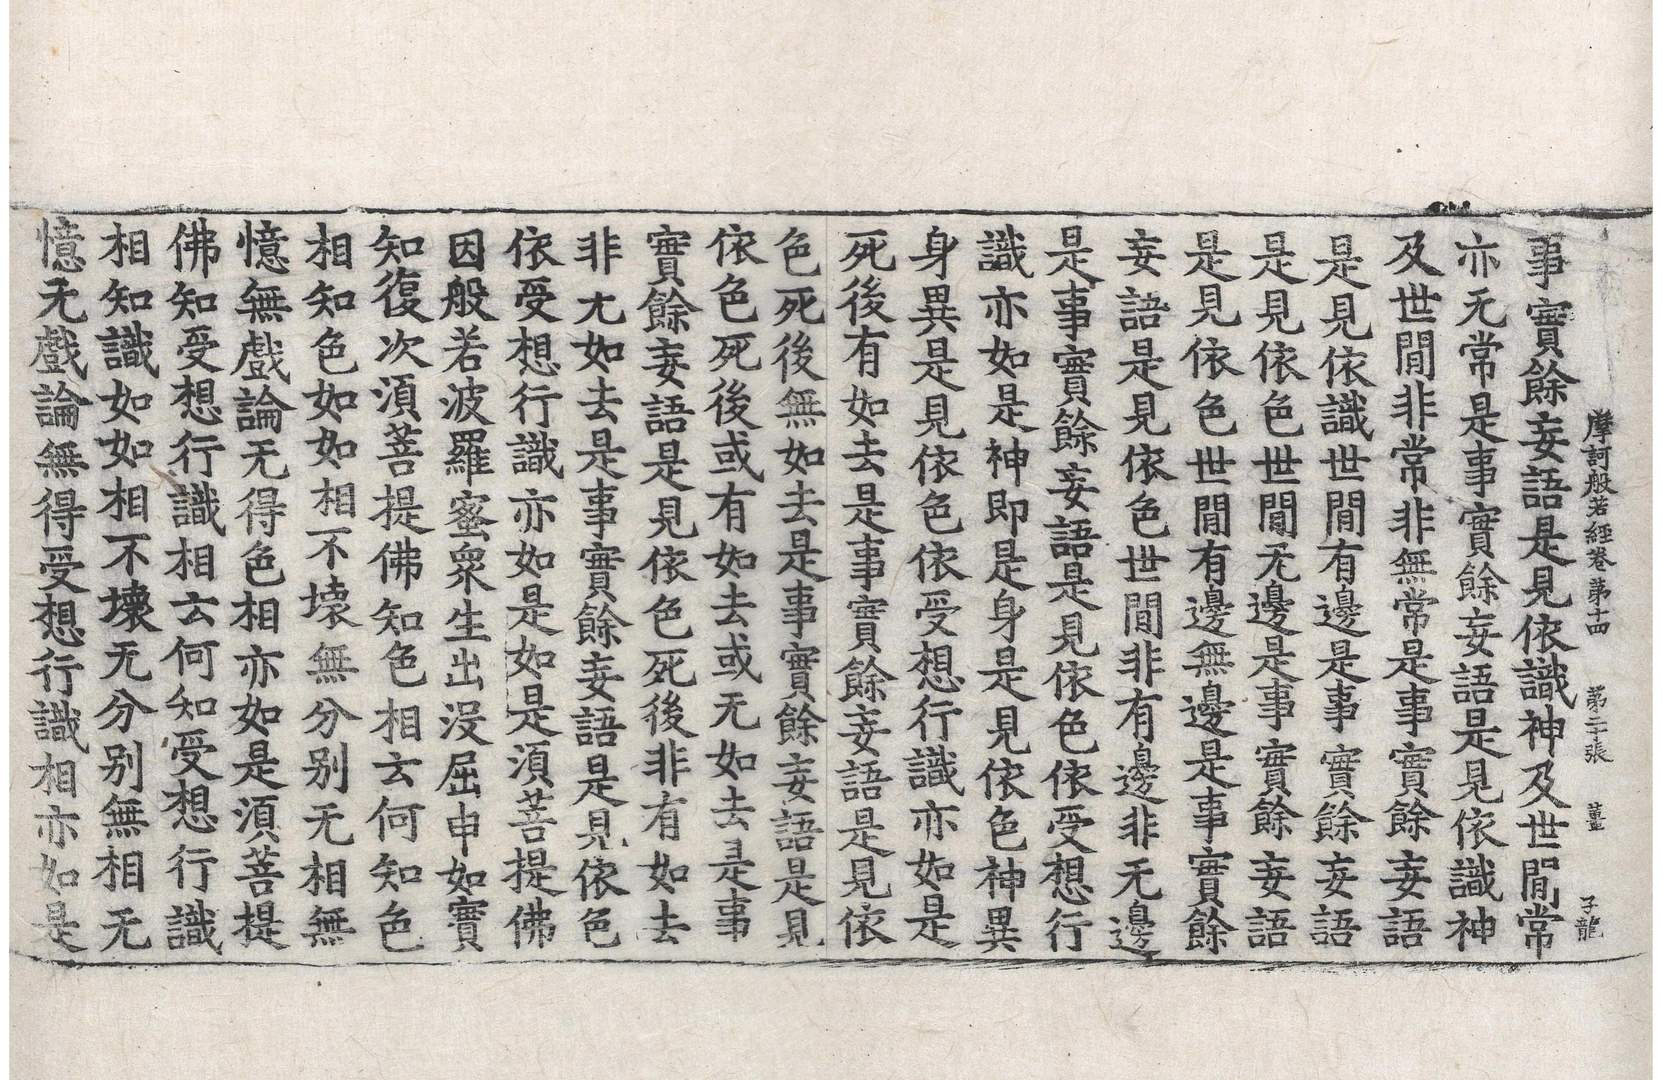 摩訶般若經卷第十四 第二十張 薑 子龍
事實餘妄語是見依識神及世間常
亦无常是事實餘妄語是見依識神
及世間非常非無常是事實餘妄語
是見依識世間有邊是事實餘妄語
是見依色世間无邊是事實餘妄語
是見依色世間有邊無邊是事實餘
妄語是見依色世間非有邊非无邊
是事實餘妄語是見依色依受想行
識亦如是神即是身是見依色神異
身異是見依色依受想行識亦如是
死後有如去是事實餘妄語是見依
色死後無如去是事實餘妄語是見
依色死後或有如去或无如去是事
實餘妄語是見依色死後非有如去
非无如去是事實餘妄語是見依色
依受想行識亦如是如是須菩提佛
因般若波羅蜜衆生出沒屈申如實
知復次須菩提佛知色相云何知色
相知色如如相不壞無分別无相無
憶無戲論无得色相亦如是須菩提
佛知受想行識相云何知受想行識
相知識如如相不壞无分別無相无
憶无戲論無得受想行識相亦如是